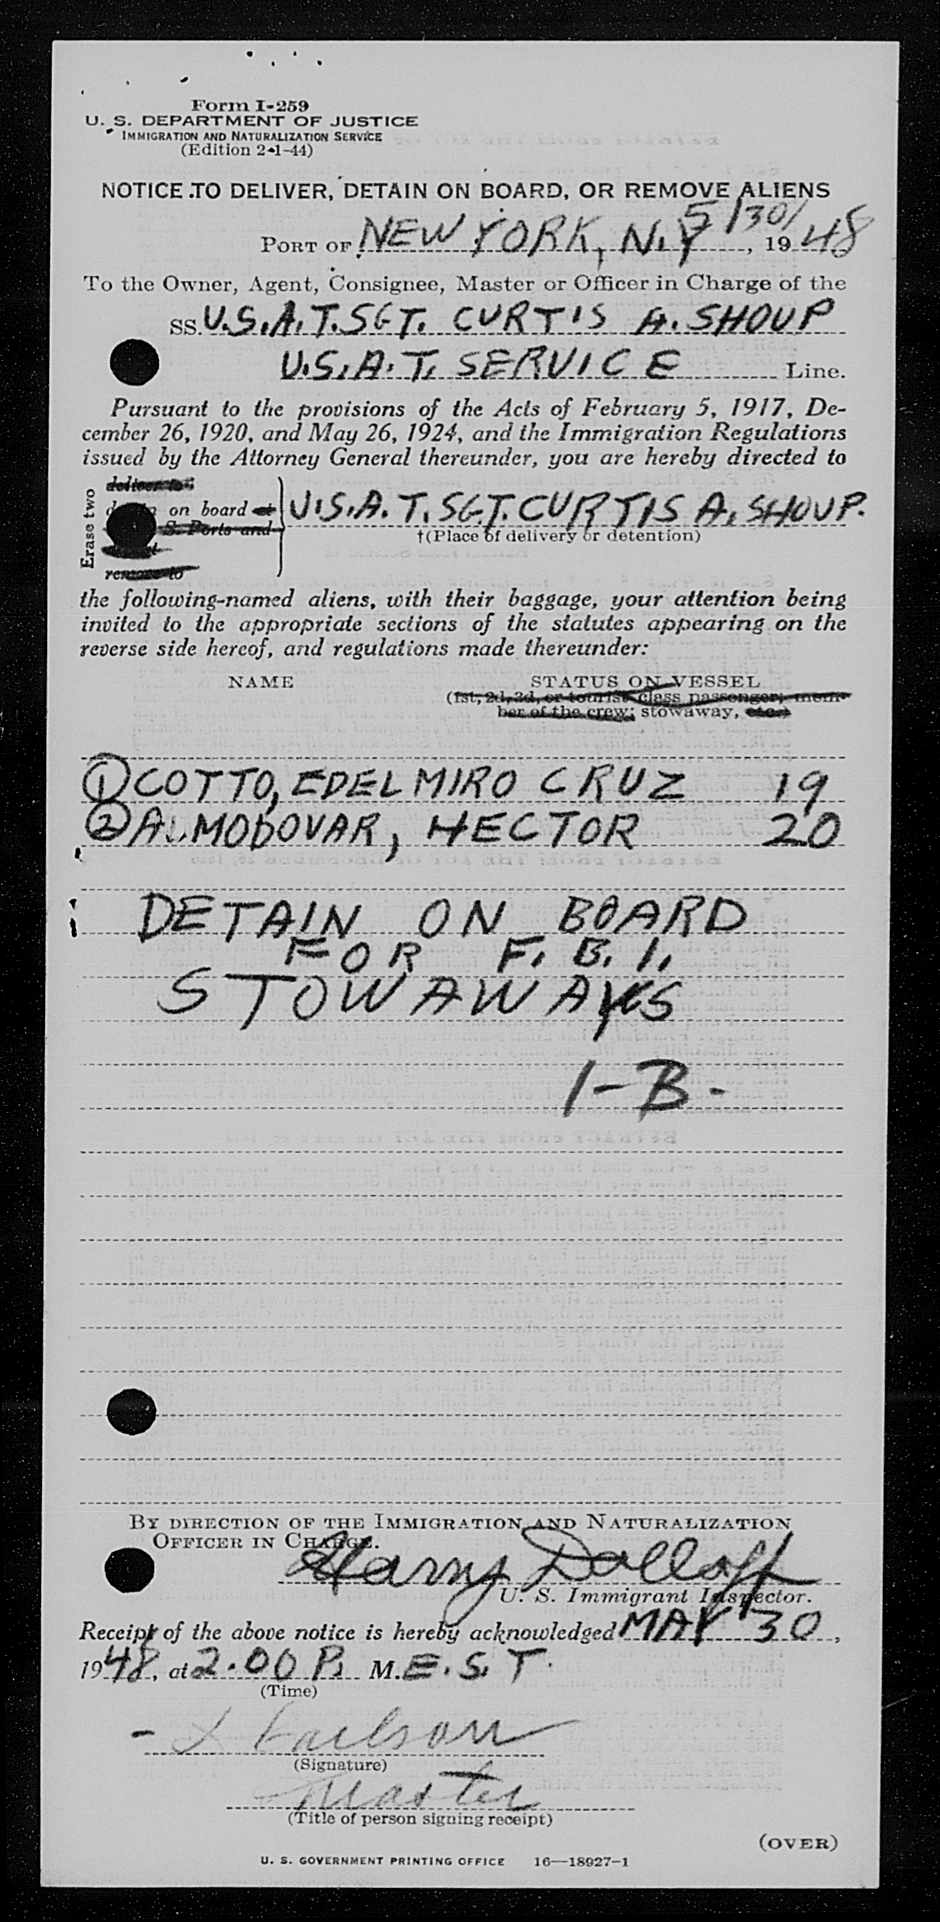 Form I-259
U. S. DEPARTMENT OF JUSTICE
IMMIGRATION AND NATURALIZATION SERVICE
(Edition 2-1-44)
NOTICE TO DELIVER, DETAIN ON BOARD, OR REMOVE ALIENS
PORT OF NEW YORK, N.Y. 5/30/, 1948
To the Owner, Agent, Consignee, Master or Officer in Charge of the
SS. U.S.A.T. SGT. CURTIS A. SHOUP
U.S.A.T. SERVICE Line.
Pursuant to the provisions of the Acts of February 5, 1917, De-
cember 26, 1920, and May 26, 1924, and the Immigration Regulations
issued by the Attorney General thereunder, you are hereby directed to
Erase two
deliver to
on board at U.S.A.T. SGT. CURTIS A. SHOUP.
S. Ports and
†(Place of delivery or detention)
remove to
the following-named aliens, with their baggage, your attention being
invited to the appropriate sections of the statutes appearing on the
reverse side hereof, and regulations made thereunder:
NAME STATUS ON VESSEL
(1st, 2d, 3d, or tourist class passenger; mem-
ber of the crew; stowaway, etc.)
① COTTO, EDELMIRO CRUZ 19
② ALMODOVAR, HECTOR 20
DETAIN ON BOARD
FOR F.B.I.
STOWAWAYS
1-B.
BY DIRECTION OF THE IMMIGRATION AND NATURALIZATION
OFFICER IN CHARGE.
Harry Dolloff
U. S. Immigrant Inspector.
Receipt of the above notice is hereby acknowledged MAY 30,
1948, at 2.00 P. M. E.S.T.
(Time)
(Signature)
Master
(Title of person signing receipt)
(OVER)
U. S. GOVERNMENT PRINTING OFFICE 16—18927-1